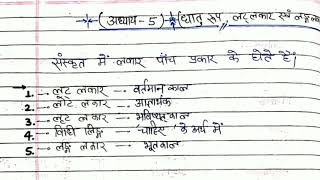 (अध्याय - 5) धातु रूप, लट् लकार एवं लङ्ग
संस्कृत में लकार पांच प्रकार के होते हैं।
1. लट् लकार - वर्तमान काल
2. लोट् लकार - आज्ञार्थक
3. लृट लकार - भविष्यत् काल
4. विधि लिङ्ग - 'चाहिए' के अर्थ में
5. लङ्ग लकार - भूतकाल